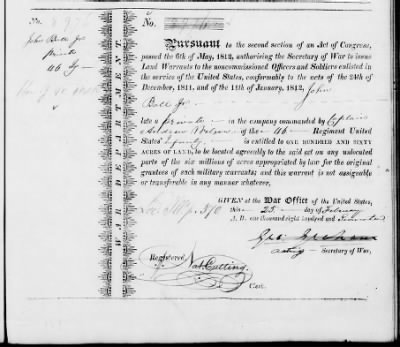 No.
John Bell Jr
private
46
No.
WAR DEPARTMENT
Pursuant to the second section of an Act of Congress,
passed the 6th of May, 1812, authorising the Secretary of War to issue
Land Warrants to the noncommissioned Officers and Soldiers enlisted in the
service of the United States, conformably to the acts of the 24th of
December, 1811, and of the 11th of January, 1812, John
Bell Jr
late a private in the company commanded by Captain
of the 46 Regiment United
States' Infantry is entitled to ONE HUNDRED AND SIXTY
ACRES OF LAND, to be located agreeably to the said act on any unlocated
part of the six millions of acres appropriated by law for the original
grantees of such military warrants; and this warrant is not assignable
or transferable in any manner whatever.
GIVEN at the War Office of the United States,
this 25 day of February
A. D. one thousand eight hundred and
Geo: Graham
acting Secretary of War.
Registered Nat. Cutting.
Clerk.